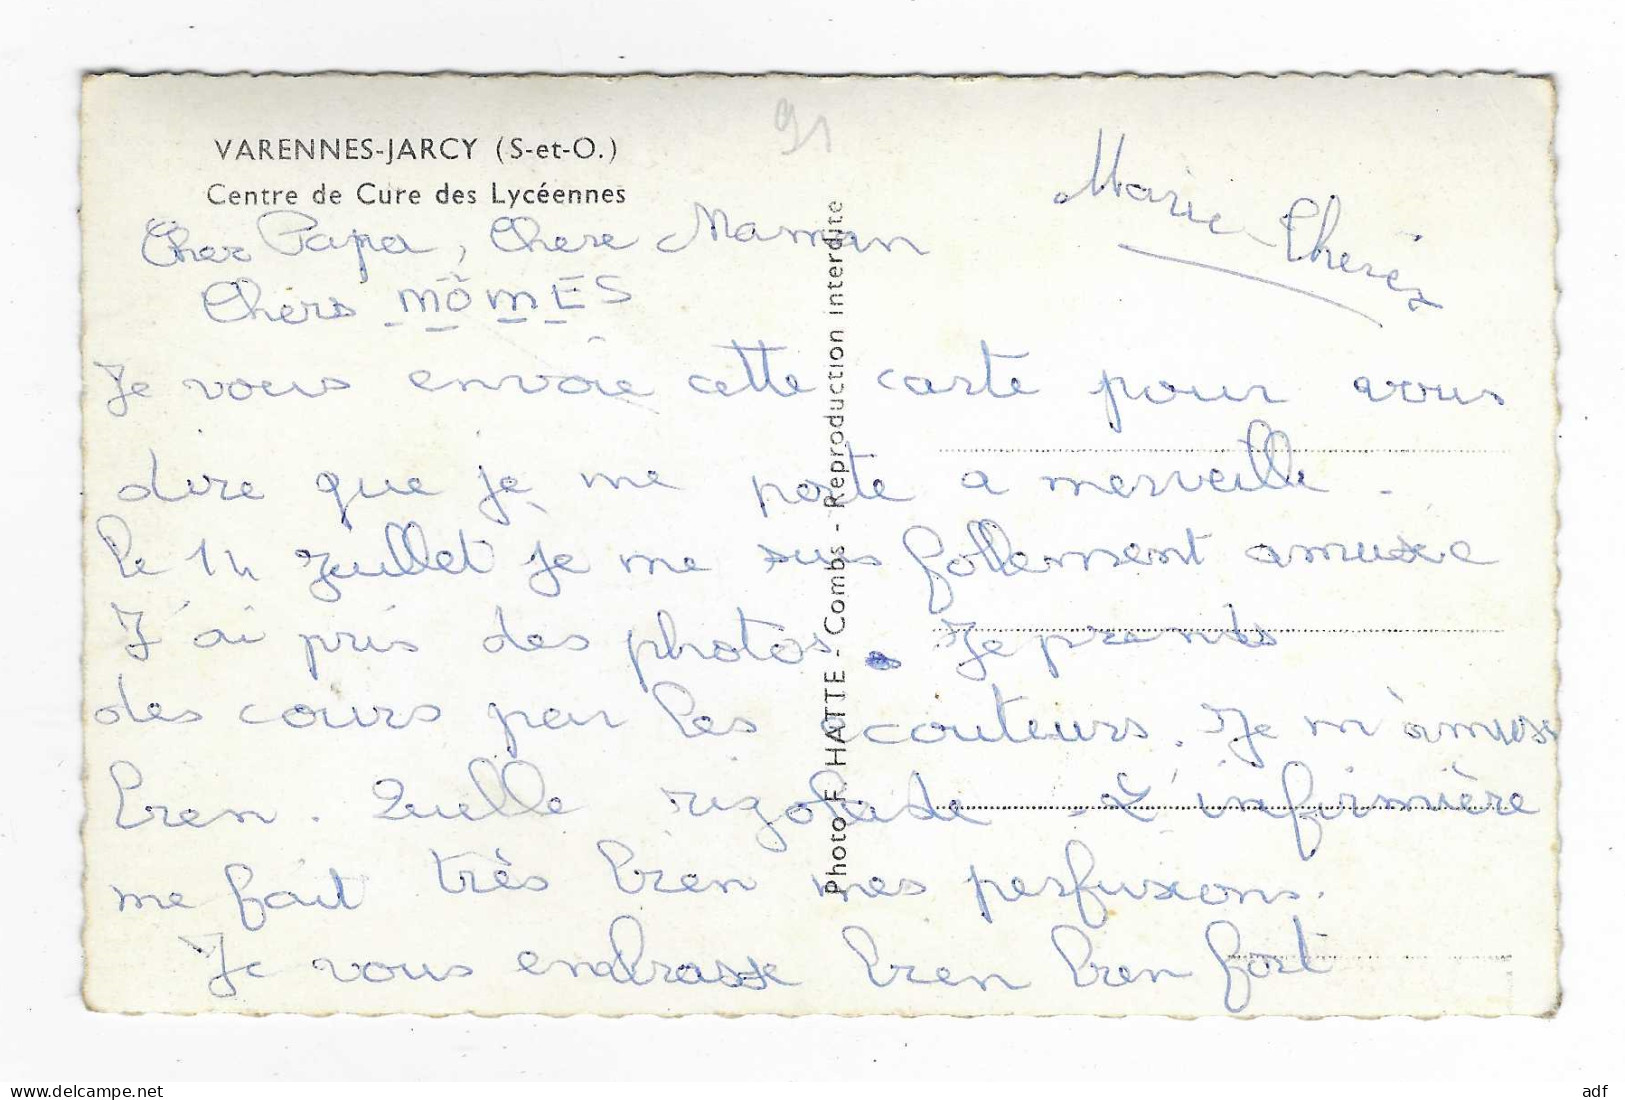 91
VARENNES-JARCY (S-et-O.)
Centre de Cure des Lycéennes
Cher Papa, Chere Maman
Chers MÔMES
Je vous envoie cette carte pour vous
dire que je me porte a merveille.
Le 14 Juillet je me suis follement amusée
J'ai pris des photos. Je prends
des cours par les écouteurs. Je m'amuse
bien. Quelle rigolade. L'infirmière
me fait très bien mes perfusions.
Je vous embrasse bien bien fort
Marie-Thérèz
Photo F. HATTE - Combs - Reproduction interdite
delcampe.net
adf